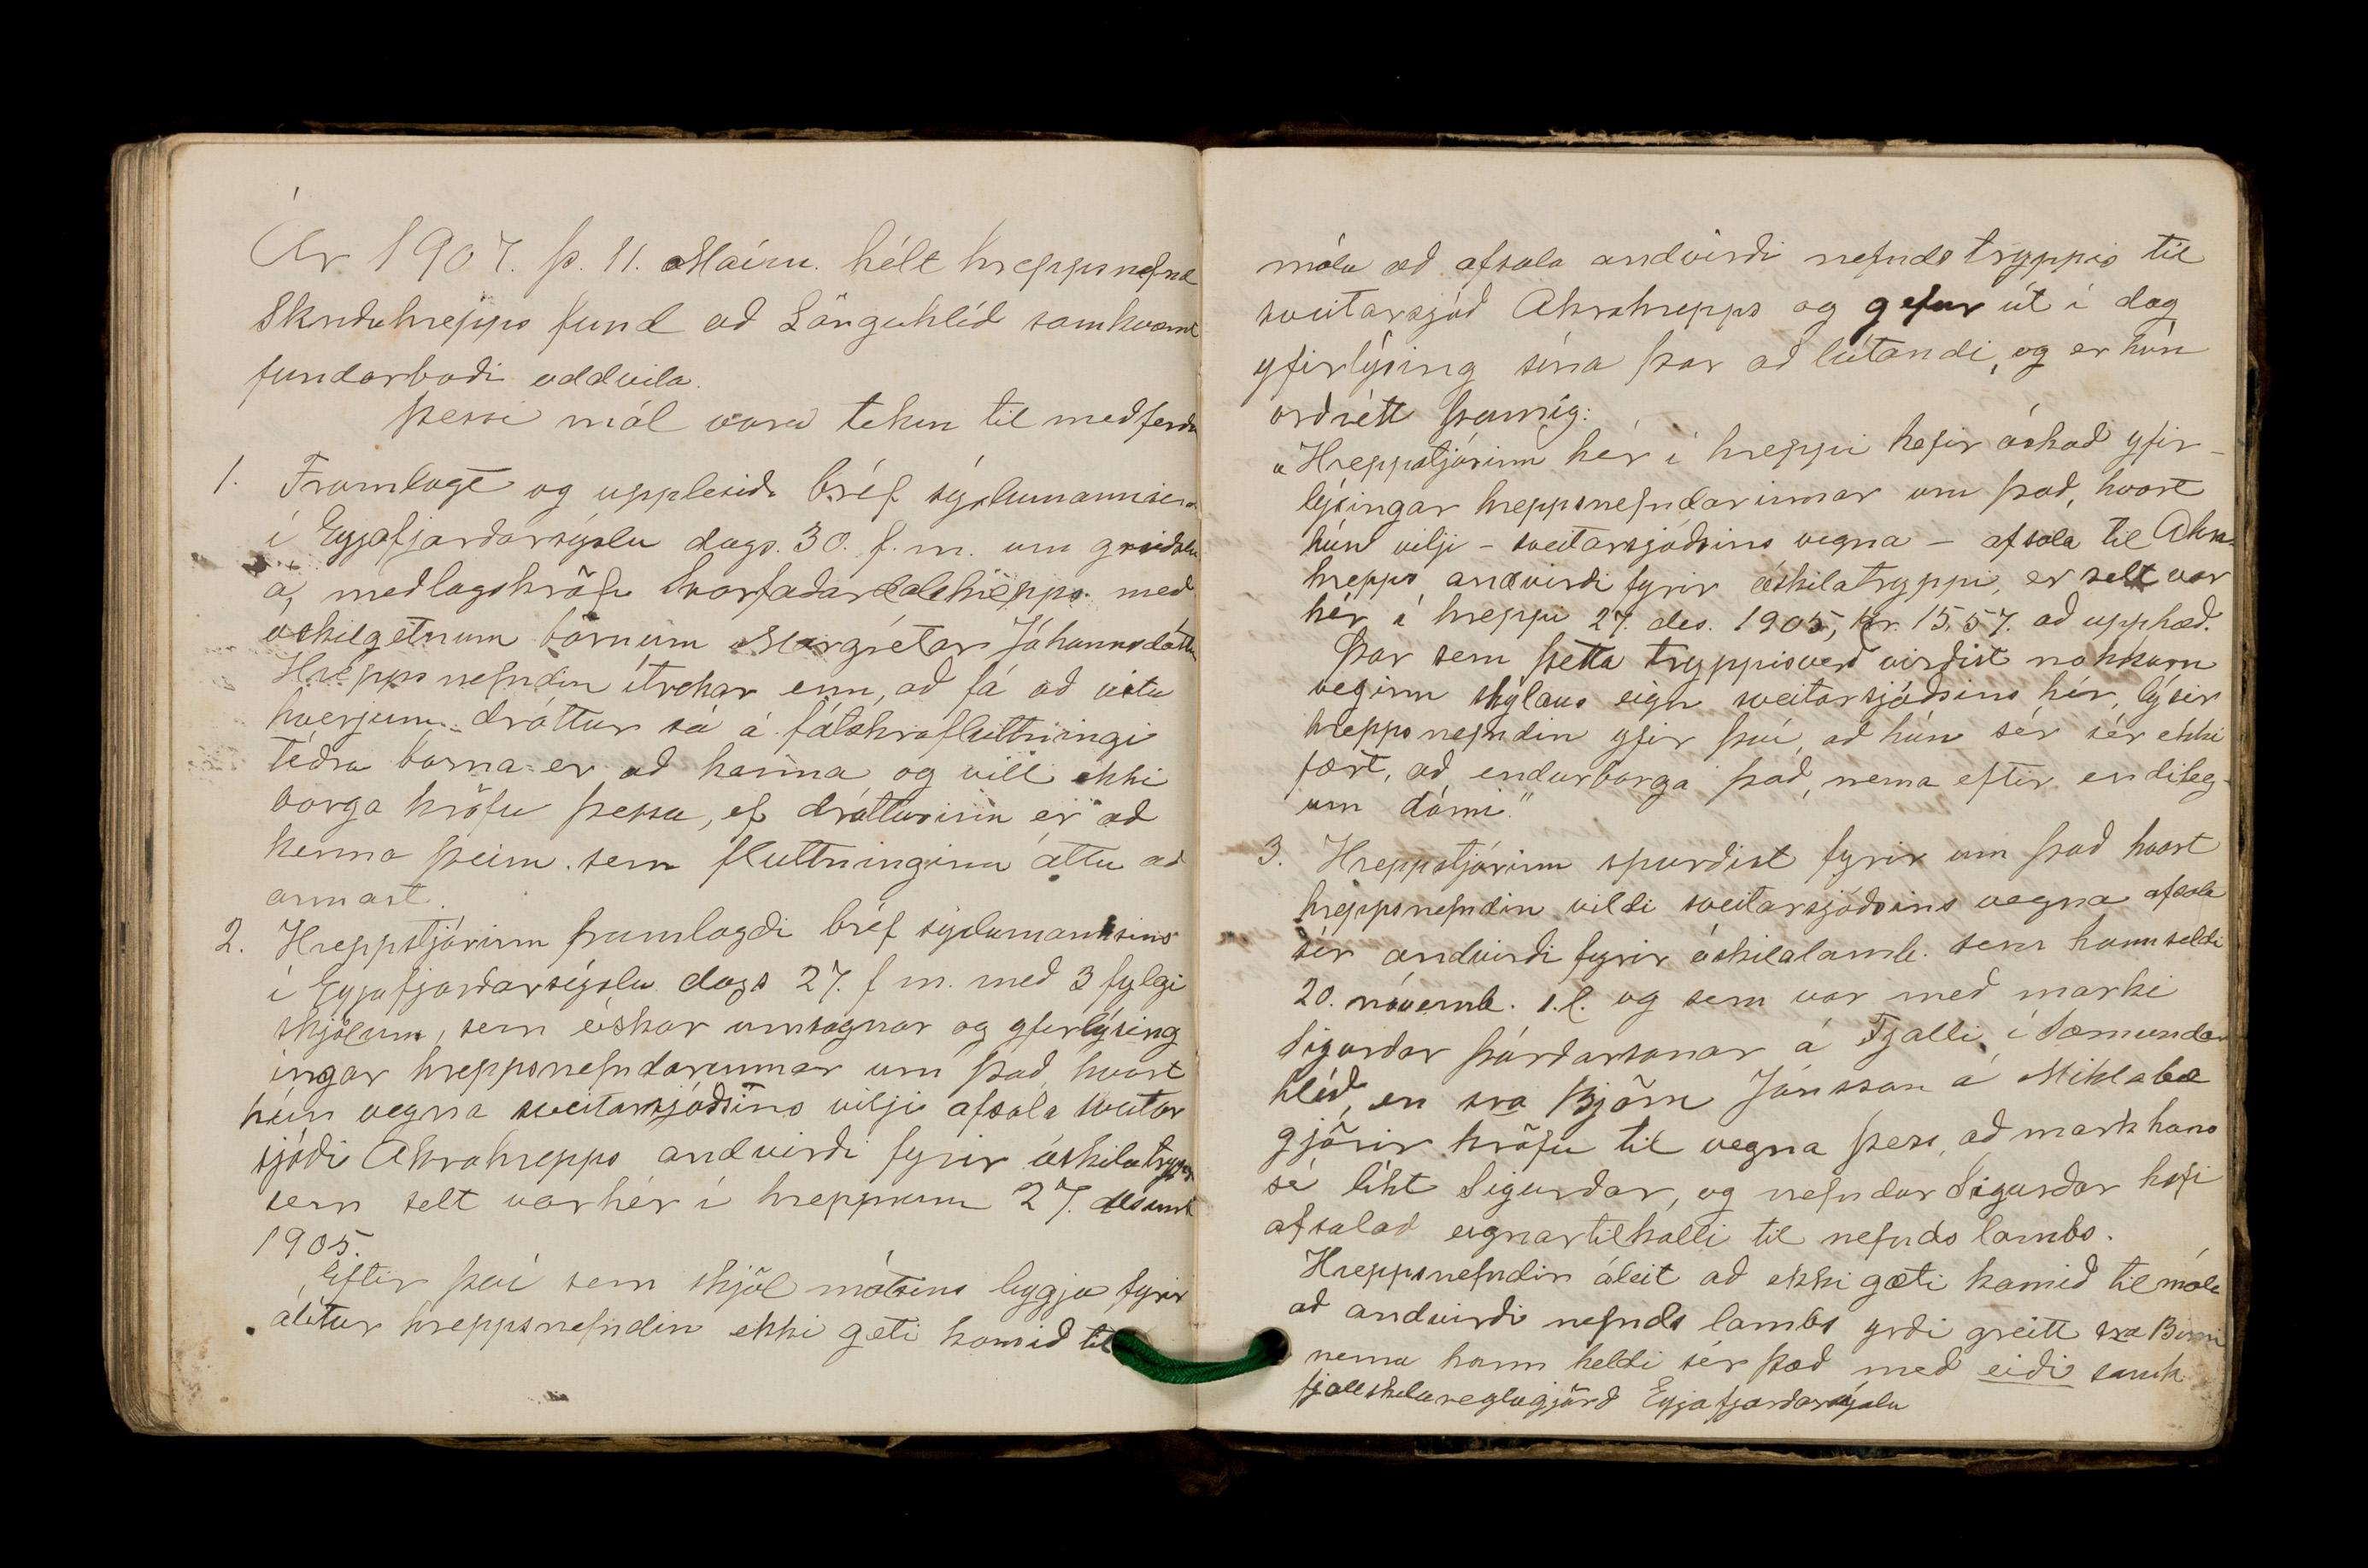 Ár 1907. þ. 11. Maím. hélt hreppsnefnd
Skriðuhrepps fund að Lönguhlíð samkvæmt
fundarboði oddvita.
Þessi mál voru tekin til meðferðar
1. Framlagt og upplesið bréf sýslumannsins
í Eyjafjarðarsýslu dags. 30. f. m. um greiðslu
á, meðlagskröfu Svarfaðardalshrepps með
óskilgetnum börnum Margrétar Jóhannsdóttur
Hreppsnefndin ítrekar enn, að fá að vita
hverjum dráttur sá á fátækraflutningi
téðra barna er að kenna og vill ekki
borga kröfu þessa, ef drátturinn er að
kenna þeim sem fluttninginn áttu að
annast.
2. Hreppstjórinn framlagði bréf sýslumannsins
í Eyjafjarðarsýslu dags 27. f m. með 3 fylgi
skjölum, sem óskar umsagnar og yfirlýsing
ingar hreppsnefndarinnar um það, hvort
hún vegna sveitarsjóðsins vilji afsala sveitar
sjóði Akrahrepps andvirði fyrir óskilatryppi
sem selt var hér í hreppnum 27. desemb
1905.
Eftir því sem skjöl málsins liggja fyrir
álítur hreppsnefndin ekki geti komið til
mála að afsala andvirði nefnds tryppis til
sveitarsjóð Akrahrepps og gefur út í dag
yfirlýsing sína þar að lútandi, og er hún
orðrétt þannig:
„Hreppstjórinn hér í hreppi hefir óskað yfir-
lýsingar hreppsnefndarinnar um það, hvort
hún vilji - sveitarsjóðsins vegna - afsala til Akra-
hrepps andvirði fyrir óskilatryppi, er selt var
hér í hreppi 27. des. 1905, kr. 15,57. að upphæð.
Þar sem þetta tryppisverð virðist nokkurn
veginn skýlaus eign sveitarsjóðsins hér, lýsir
hreppsnefndin yfir því, að hún sér sér ekki
fært, að endurborga það, nema eftir endileg-
um dómi"
3. Hreppstjórinn spurðist fyrir um það hvort
hreppsnefndin vildi sveitarsjóðsins vegna afsala
sér andvirði fyrir óskilalamb. sem hann seldi
20. nóvemb. s.l. og sem var með marki
Sigurðar Þórðarsonar á Fjalli í Sæmundar
hlíð, en sra Björn Jónsson á Miklabæ
gjörir kröfu til vegna þess, að mark hans
sé líkt Sigurðar, og nefndur Sigurðar hafi
afsalað eignartilkalli til nefnds lambs.
Hreppsnefndin áleit að ekki gæti komið til mála
að andvirði nefnds lambs yrði greitt sra Birni
nema hann heldi sér það með eiði samk
fjallskilareglugjörð Eyjafjarðarsýslu